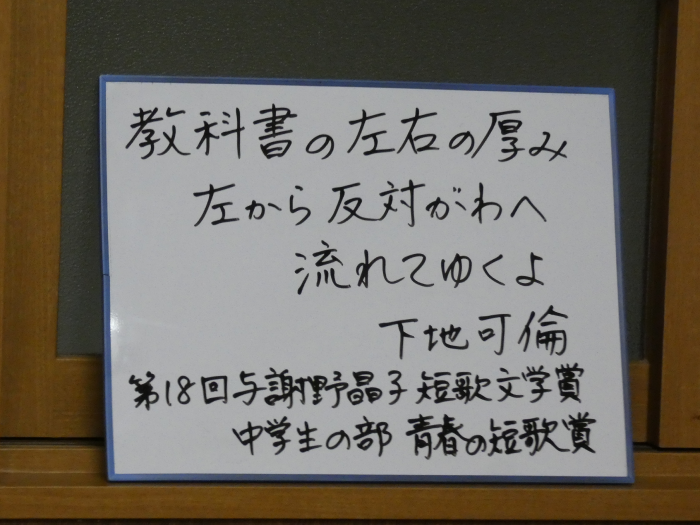 教科書の左右の厚み
左から反対がわへ
流れてゆくよ
下地可倫
第18回与謝野晶子短歌文学賞
中学生の部 青春の短歌賞